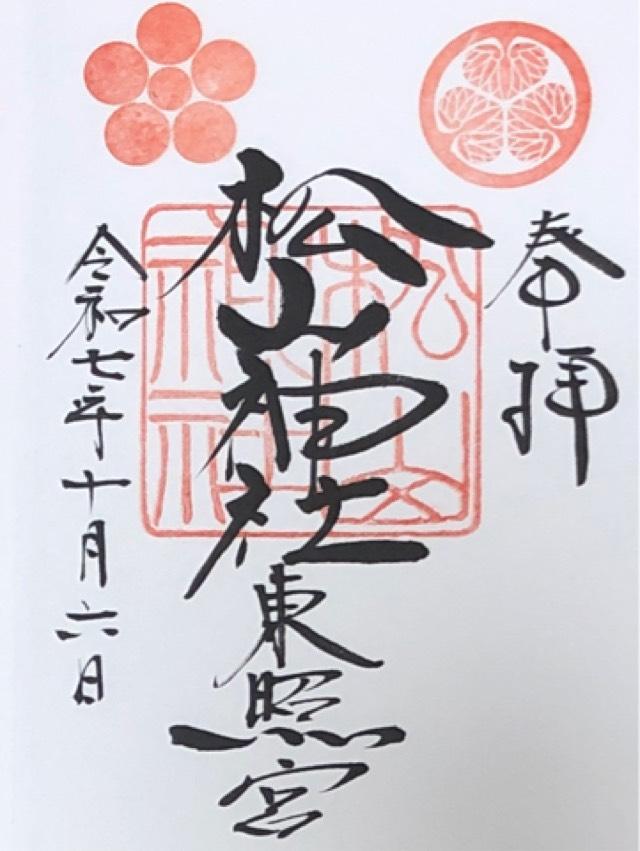 奉拝
松山神社
東照宮
令和七年十月六日
松山
神社